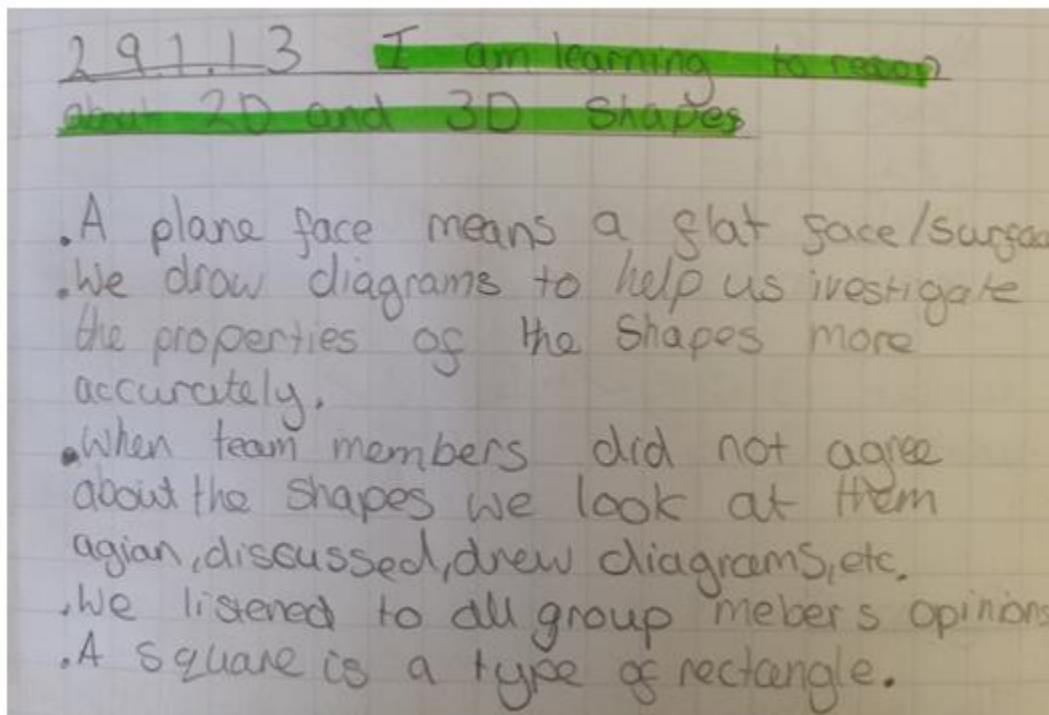 29.1.13 I am learning to reason
about 2D and 3D Shapes
.A plane face means a flat face/surfac
.We draw diagrams to help us ivestigate
the properties of the shapes more
accurately.
.When team members did not agree
about the shapes we look at them
agian, discussed, drew diagrams, etc.
.We listened to all group mebers opinions
.A square is a type of rectangle.